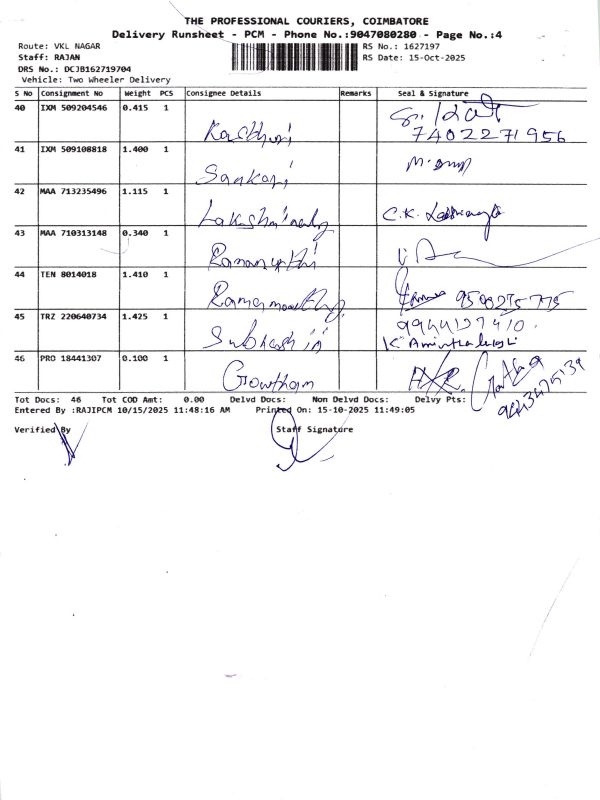 THE PROFESSIONAL COURIERS, COIMBATORE
Delivery Runsheet - PCM - Phone No.:9047080280 - Page No.:4
Route: VKL NAGAR
RS No.: 1627197
Staff: RAJAN
RS Date: 15-Oct-2025
DRS No.: DCJB162719704
Vehicle: Two Wheeler Delivery
S No Consignment No Weight PCS Consignee Details Remarks Seal & Signature
40 IXM 509204546 0.415 1
Kasthuri 7402271956
41 IXM 509108818 1.400 1
Sankari
42 MAA 713235496 1.115 1
C.K.
43 MAA 710313148 0.340 1
44 TEN 8014018 1.410 1
45 TRZ 220640734 1.425 1
K
46 PRO 18441307 0.100 1
Gowtham
Tot Docs: 46 Tot COD Amt: 0.00 Delvd Docs: Non Delvd Docs: Delvy Pts:
Entered By :RAJIPCM 10/15/2025 11:48:16 AM Printed On: 15-10-2025 11:49:05
Verified By Staff Signature